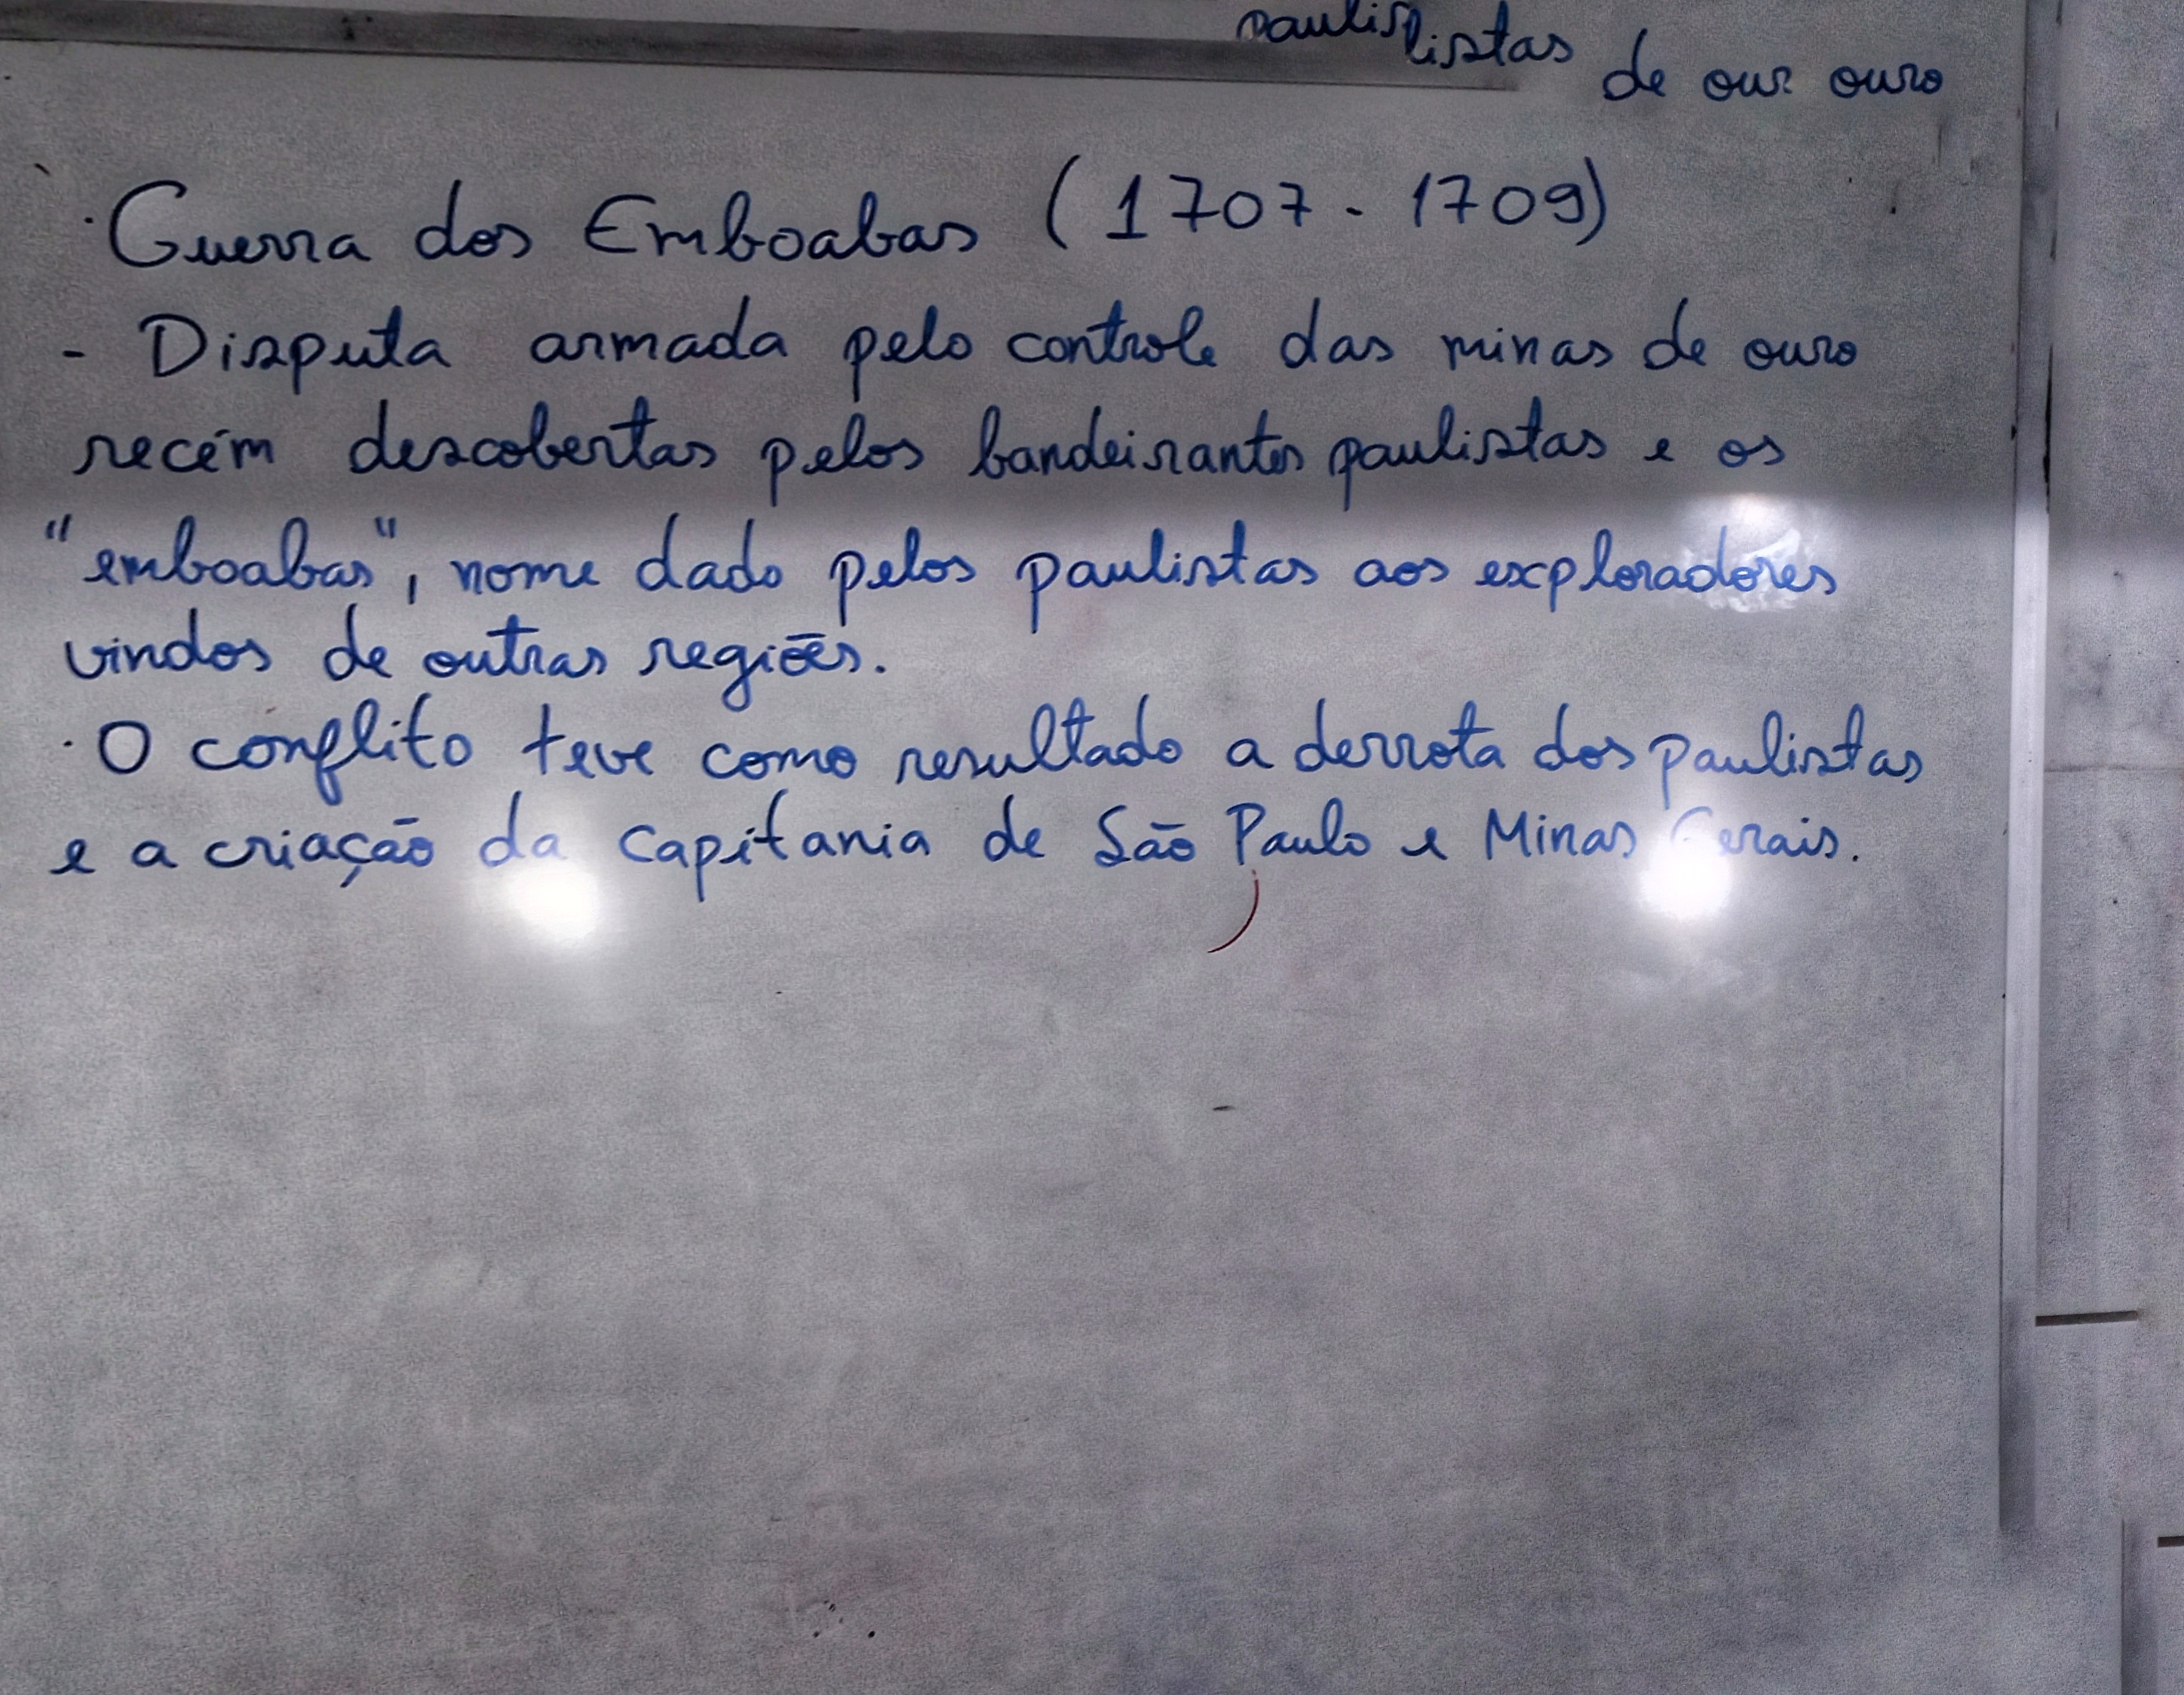 paulis listas de our ouro
· Guerra dos Emboabas (1707 - 1709)
- Disputa armada pelo controle das minas de ouro
recém descobertas pelos bandeirantes paulistas e os
"emboabas", nome dado pelos paulistas aos exploradores
vindos de outras regiões.
· O conflito teve como resultado a derrota dos paulistas
e a criação da capitania de São Paulo e Minas Gerais.